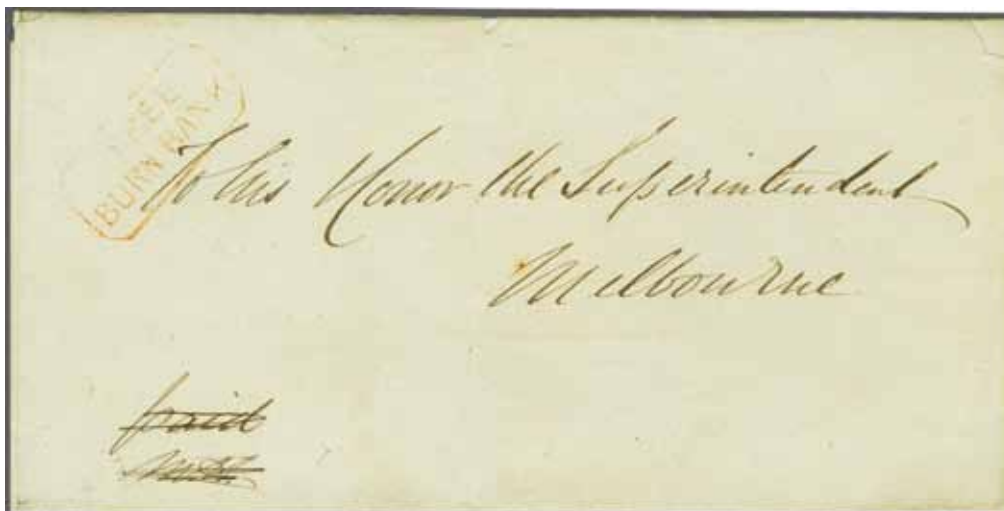 FREE
BURN BANK
To his Honor the Superintendent
Melbourne
paid